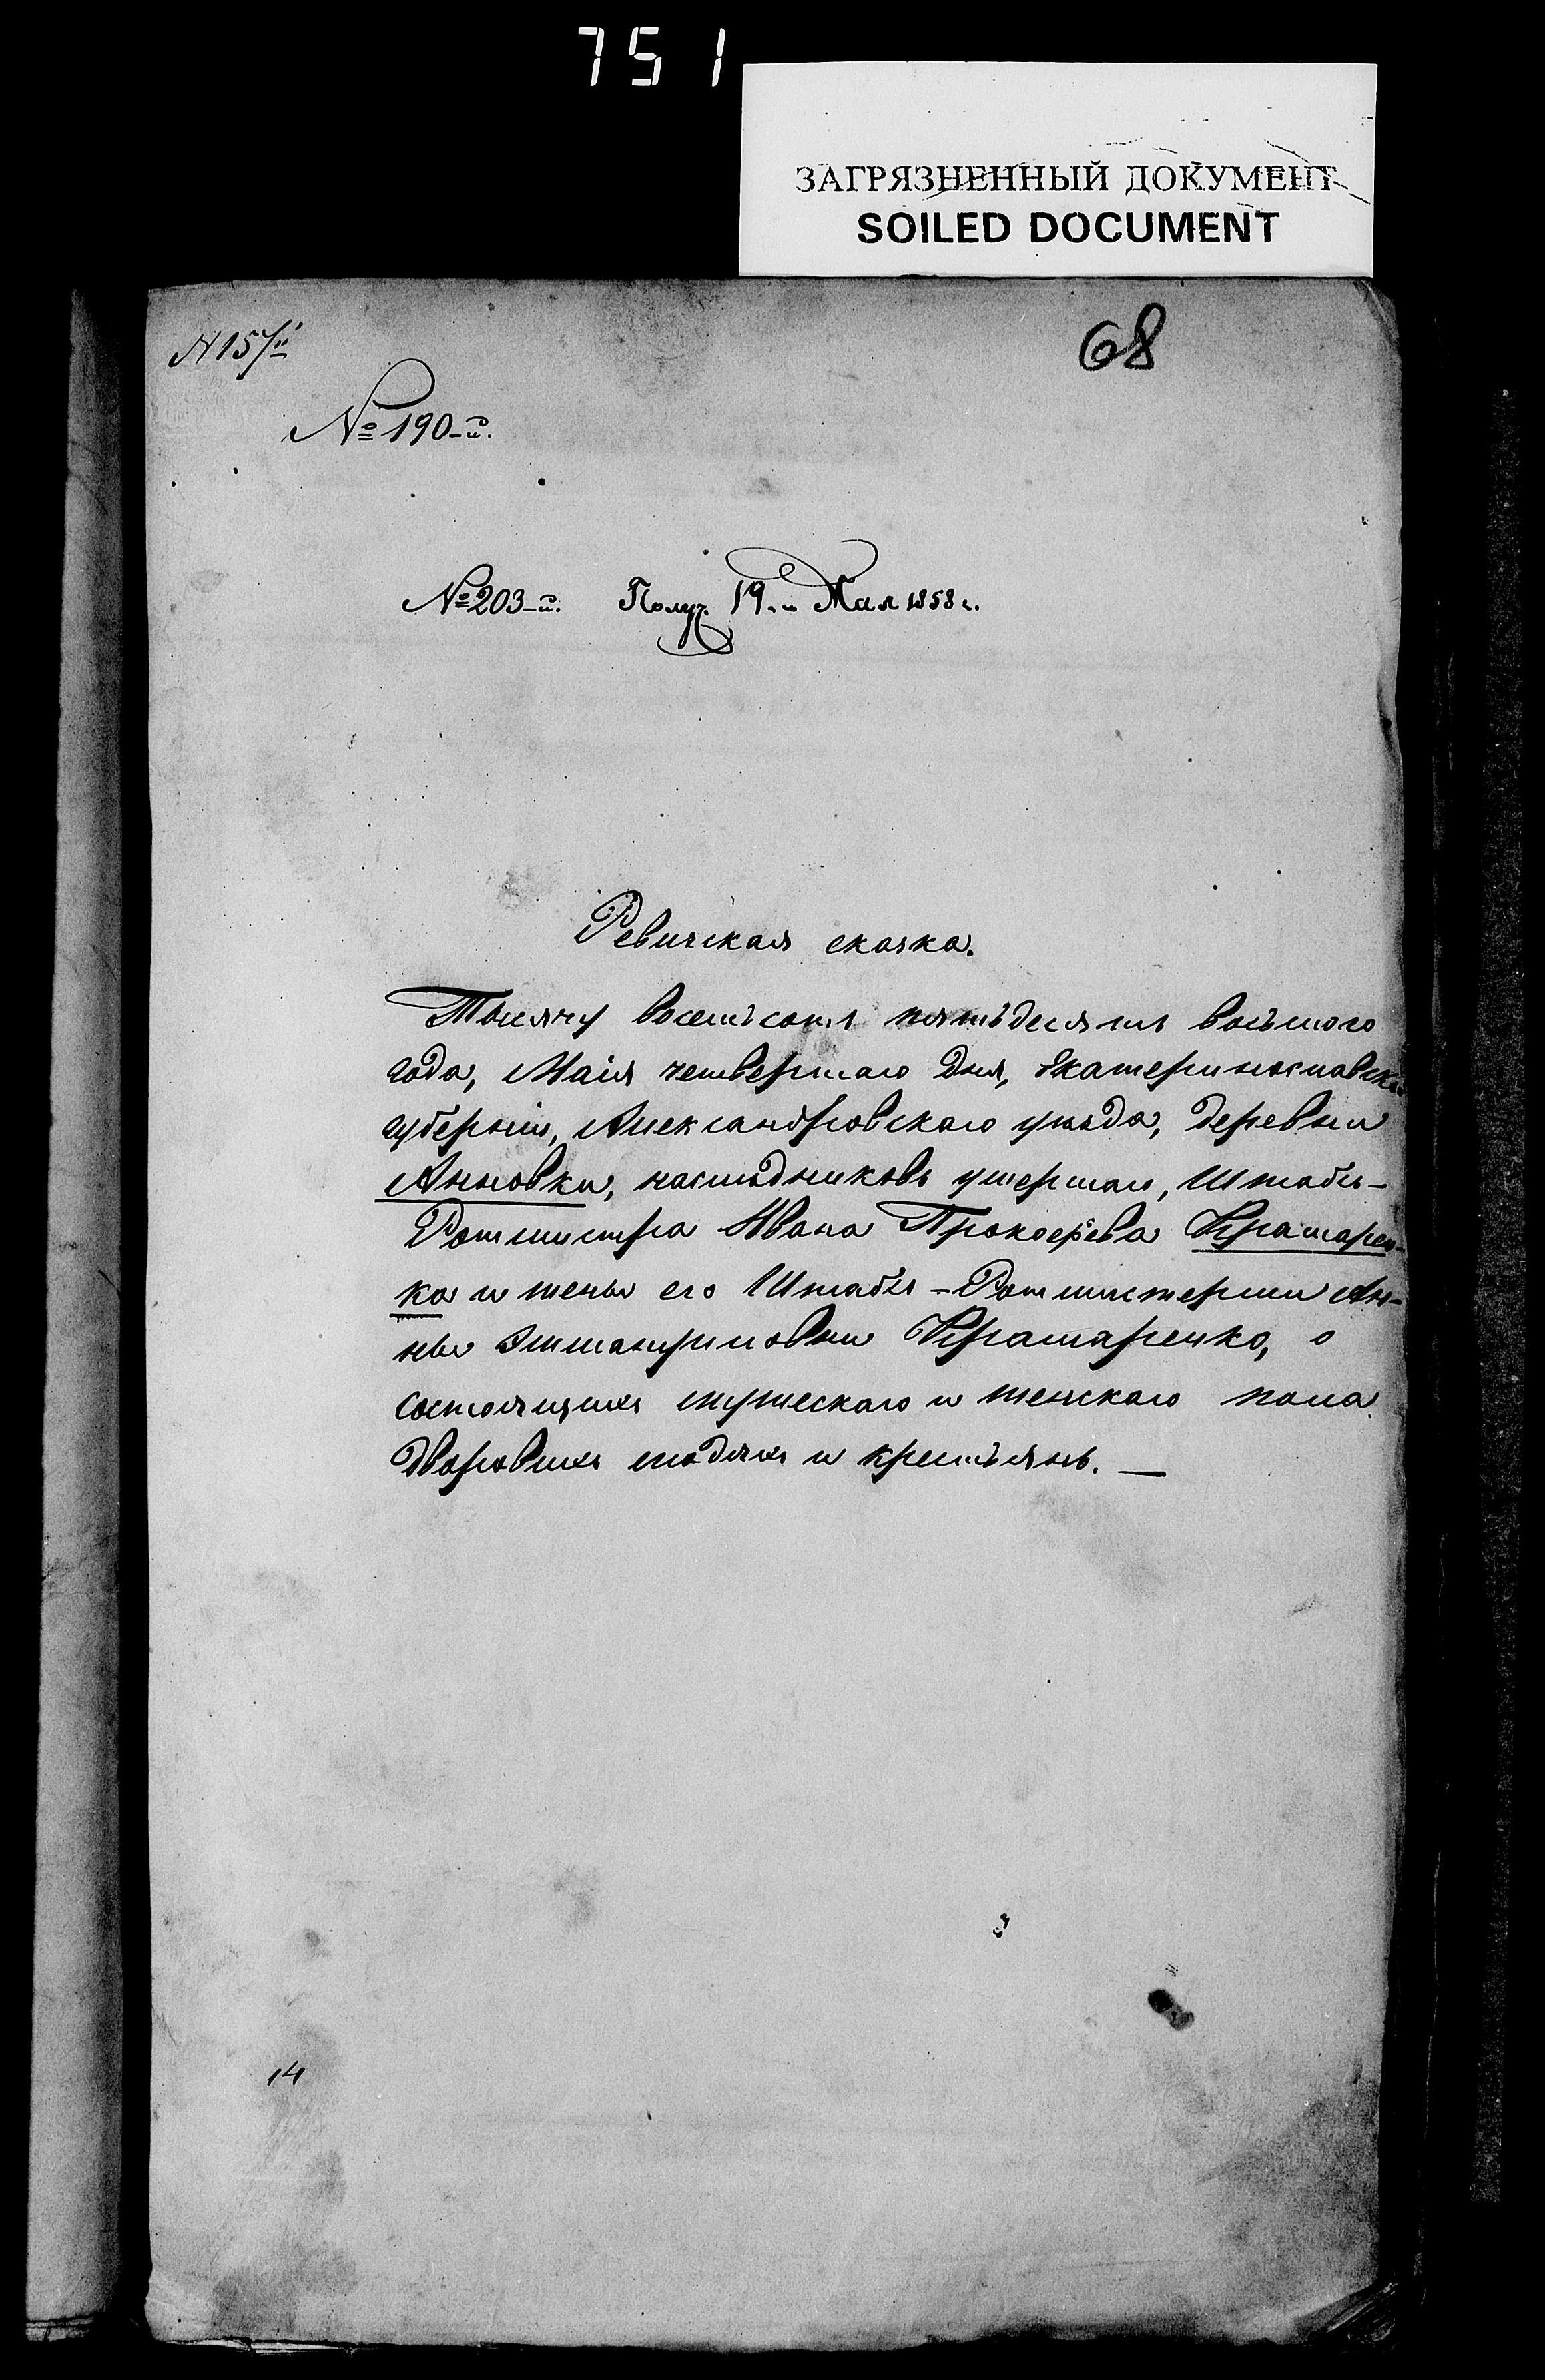 751
ЗАГРЯЗНЕННЫЙ ДОКУМЕНТ
SOILED DOCUMENT
68
№ 190-й.
№ 203-й. Получ. 19-го Мая 1858 г.
Ревизская сказка.
Тысячу восемьсотъ пятьдесятъ восьмого
года, Маія четвертаго дня, Екатеринославской
губерніи, Александровскаго уѣзда, деревни
Анновки, наслѣдниковъ умершаго, Штабъ-
Ротмистра Ивана Прокофьева Крамарен-
ка и жены его Штабъ-Ротмистерши Ан-
ны Крамаренко, о
состоящихъ мужескаго и женскаго пола
дворовыхъ людяхъ и крестьянъ. —
14